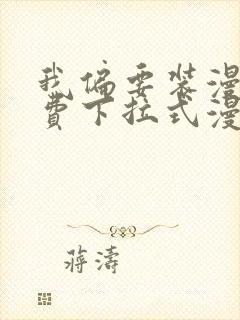 我偏要装漫
費下拉式漫
蔣濤